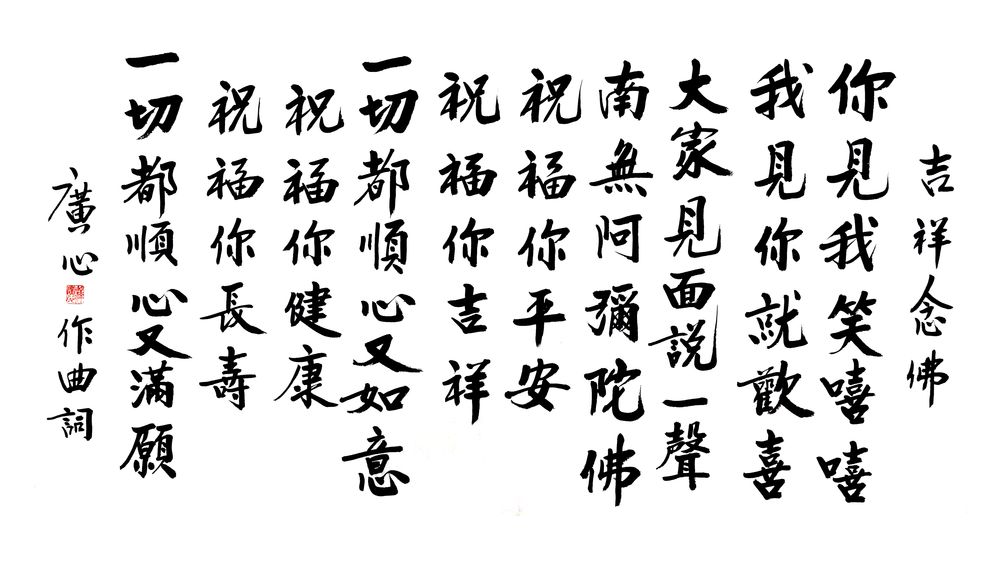 吉祥念佛
你見我笑嘻嘻
我見你就歡喜
大家見面説一聲
南無阿彌陀佛
祝福你平安
祝福你吉祥
一切都順心又如意
祝福你健康
祝福你長壽
一切都順心又滿願
廣心作曲詞